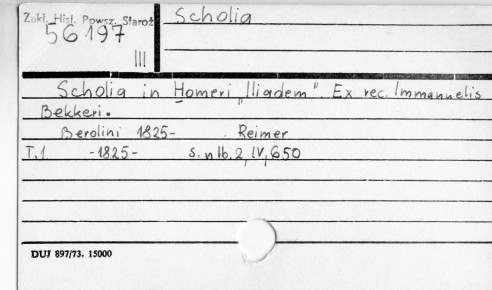 Zakł. Hist. Powsz. Staroż
56197
III
Scholia
Scholia in Homeri „Iliadem". Ex rec. Immanuelis
Bekkeri.
Berolini 1825- . Reimer
T.1 -1825- s. nlb. 2, IV, 650
DUJ 897/73. 15000